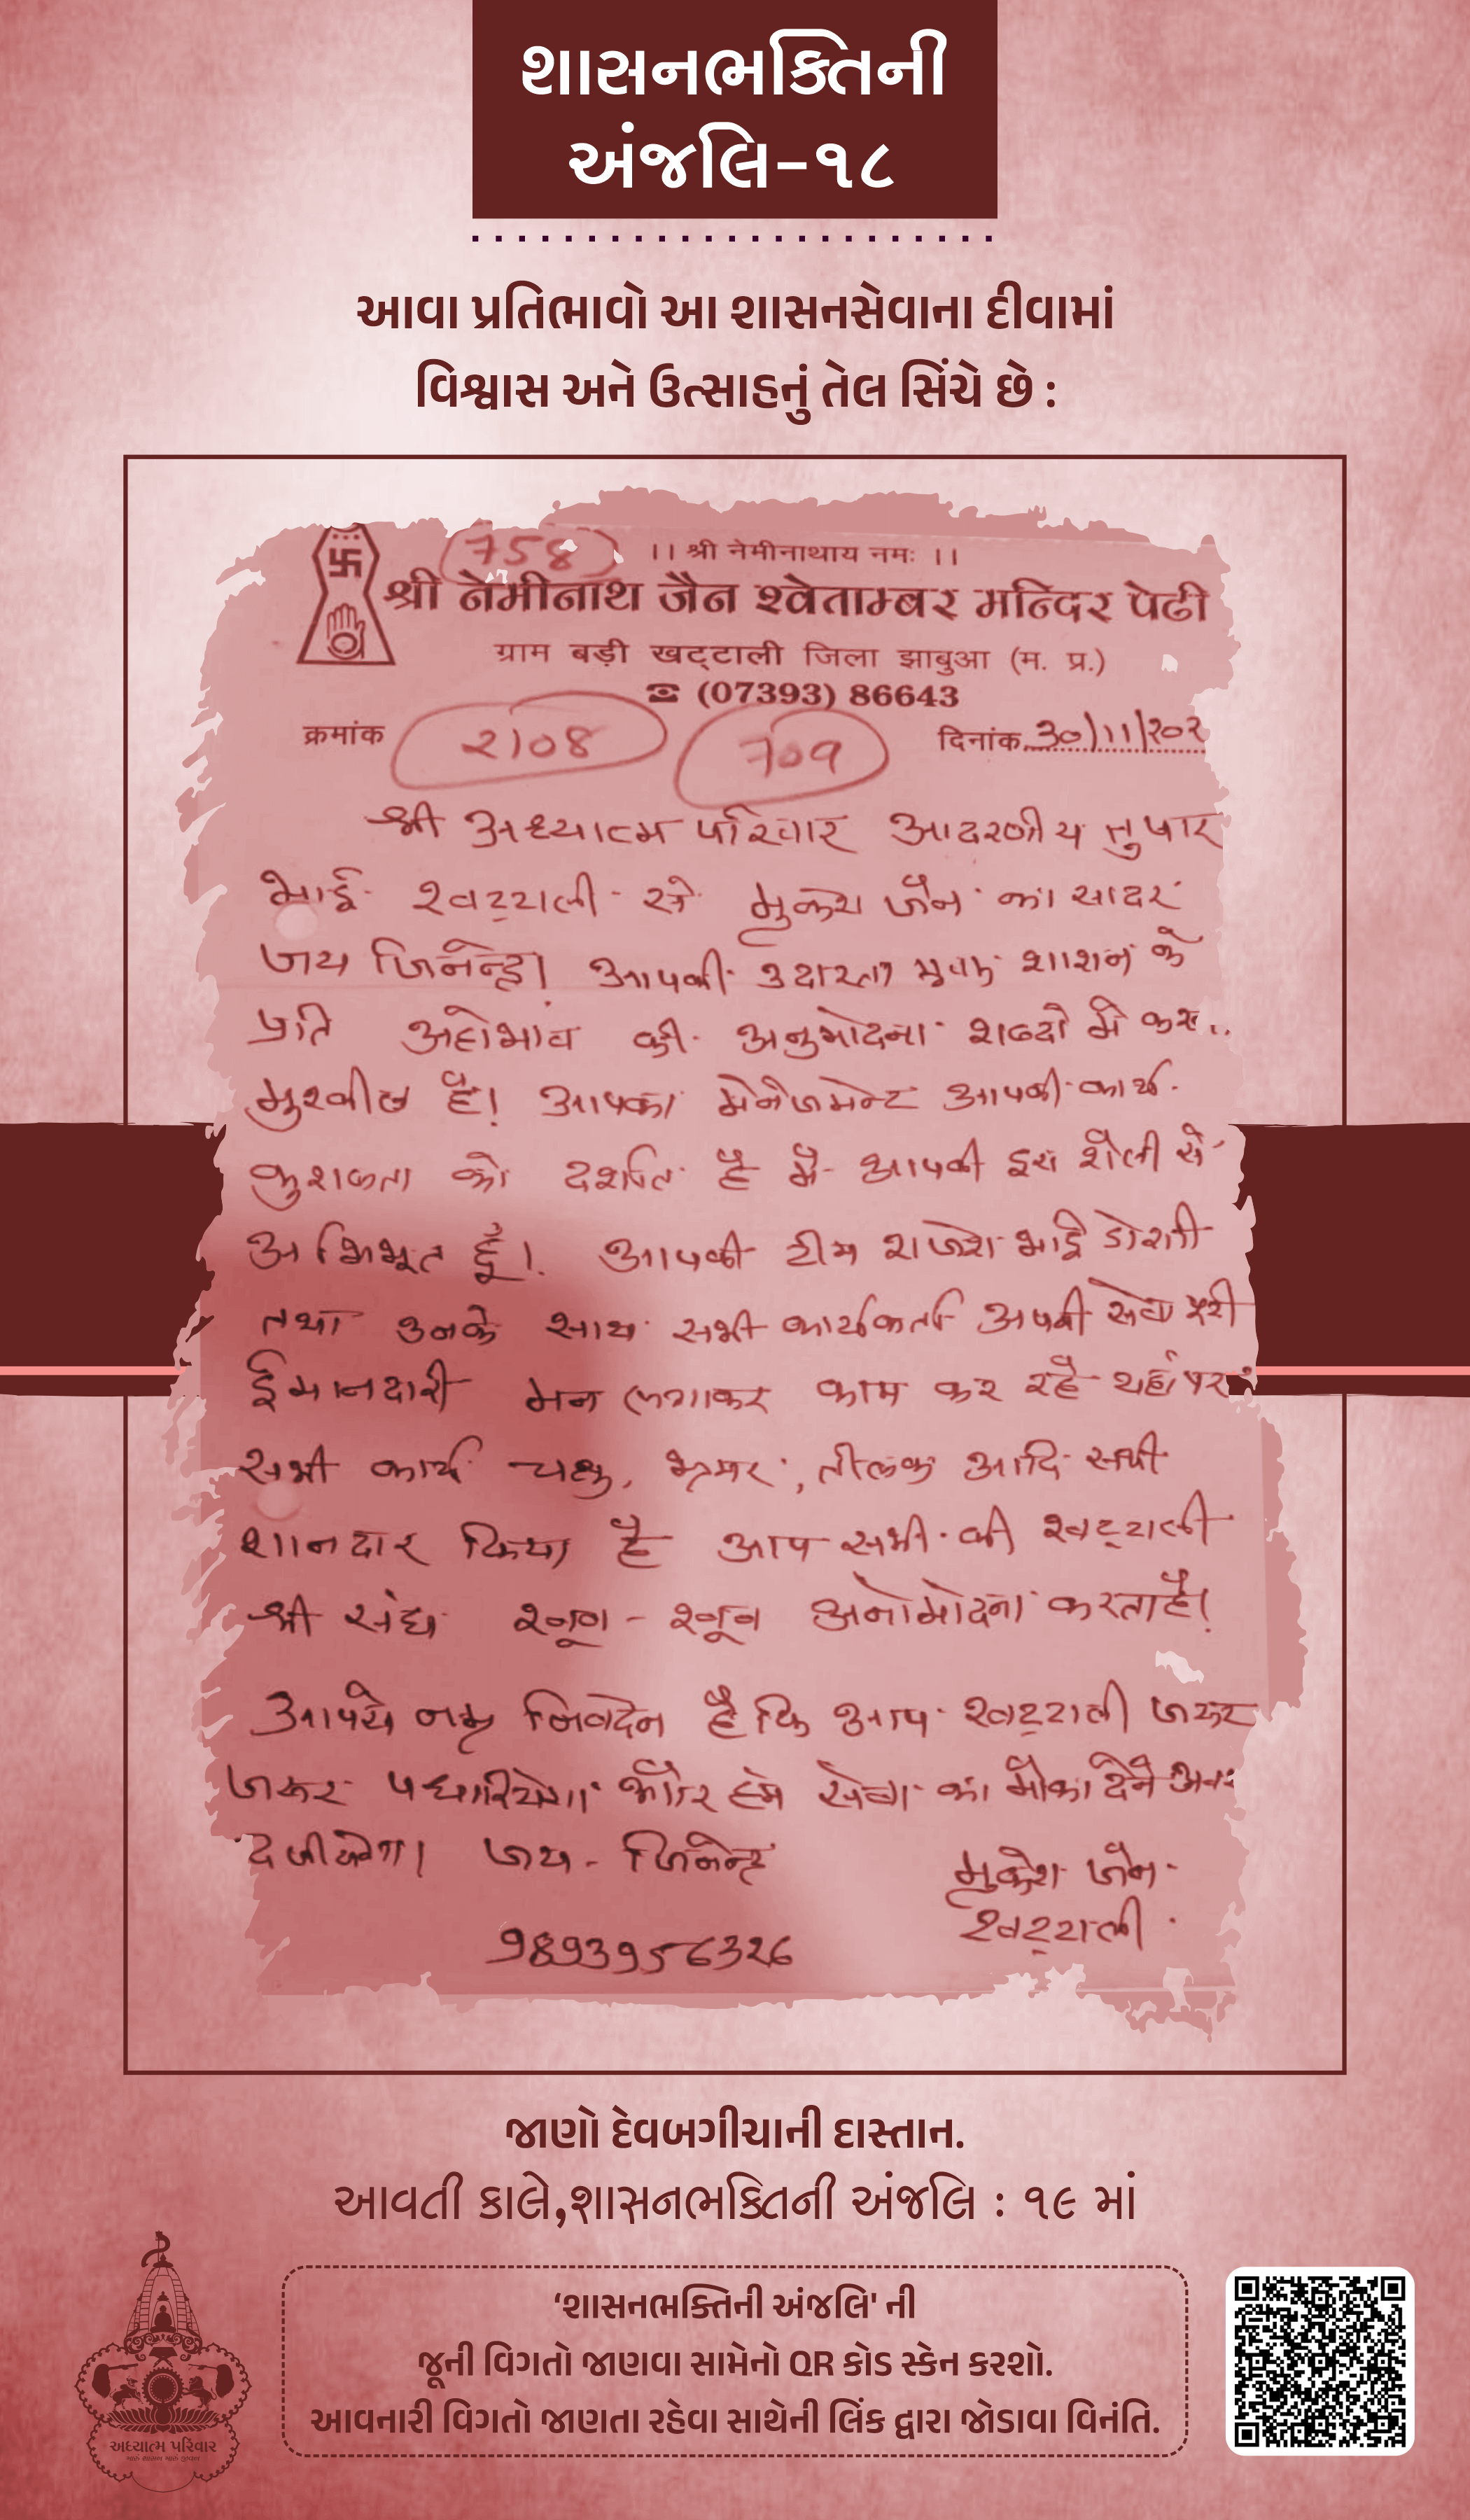 શાસનભક્તિની
અંજલિ-૧૮
આવા પ્રતિભાવો આ શાસનસેવાના દીવામાં
વિશ્વાસ અને ઉત્સાહનું તેલ સિંચે છે :
(758)
।। श्री नेमीनाथाय नमः ।।
श्री नेमीनाथ जैन श्वेताम्बर मन्दिर पेढी
ग्राम बड़ी खट्टाली जिला झाबुआ (म. प्र.)
☎ (07393) 86643
क्रमांक 2108 709 दिनांक 30/11/202
श्री अध्यात्म परिवार आदरणीय तुषार
भाई खट्टाली से मुकेश जैन का सादर
जय जिनेन्द्र! आपकी उदारता शाशन के
प्रति अहोभाव की अनुमोदना शब्दो मे
मुश्कील है! आपका मेनेजमेन्ट आपकी कार्य
कुशलता को दर्शाता है मै आपकी इस शैली से
अभिभूत हूँ! आपकी टीम राजेश भाई डोशी
तथा उनके साथ सभी कार्यकर्ता अपनी सेवा
ईमानदारी मन लगाकर काम कर रहै यहां पर
सभी कार्य चक्षु, भ्रमर, तीलक आदि सभी
शानदार किया है आप सभी की खट्टाली
श्री संघ खूब - खूब अनोमोदना करता है!
आपसे नम्र निवदेन है कि आप खट्टाली जरूर
जरूर पधारियेगा और हमे सेवा का मौका देने
जय - जिनेन्द्र
मुकेश जैन
खट्टाली
9893956326
જાણો દેવબગીચાની દાસ્તાન.
આવતી કાલે,શાસનભક્તિની અંજલિ : ૧૯ માં
‘શાસનભક્તિની અંજલિ' ની
જૂની વિગતો જાણવા સામેનો QR કોડ સ્કેન કરશો.
આવનારી વિગતો જાણતા રહેવા સાથેની લિંક દ્વારા જોડાવા વિનંતિ.
અધ્યાત્મ પરિવાર